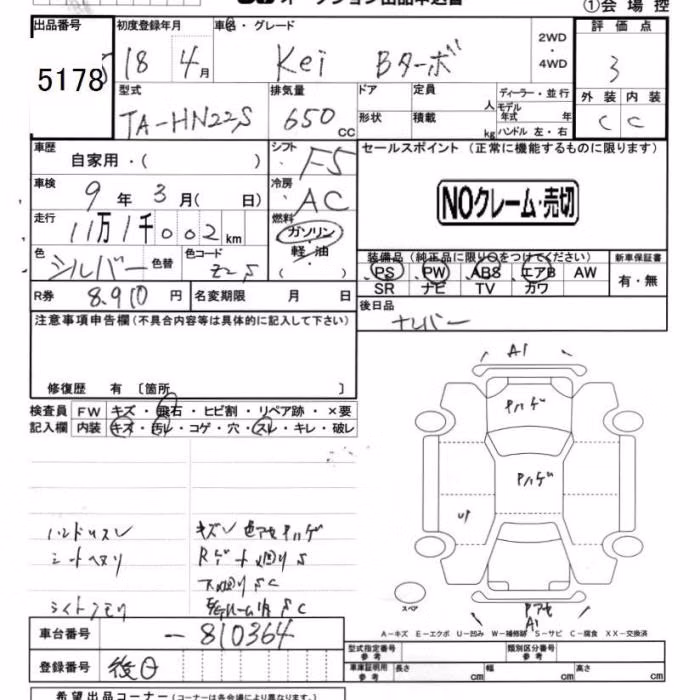 ①会場控
出品番号 5178
初度登録年月 18 4月
車名・グレード Kei Bターボ
2WD・4WD
評価点 3
型式 TA-HN22S
排気量 650 CC
ドア 定員 人
ディーラー・並行
モデル年式 年
形状 積載 kg
ハンドル 左・右
外装 内装
C C
車歴 自家用・( )
シフト F5
セールスポイント(正常に機能するものに限ります)
車検 9年 3月( 日)
冷房 AC
NOクレーム・売切
走行 11万1千002km
燃料 ガソリン・軽油 ( )
色 シルバー 色替
色コード Z2S
装備品(純正品に限り○をつけてください)
新車保証書
PS PW ABS エアB AW
SR ナビ TV カワ
有・無
R券 8.910円
名変期限 月 日
後日品 ナンバー
注意事項申告欄(不具合内容等は具体的に記入して下さい)
修復歴 有 〔箇所 〕
検査員記入欄
FW キズ・飛石・ヒビ割・リペア跡・×要
内装 キズ・汚レ・コゲ・穴・スレ・キレ・破レ
A1
Pハゲ
Pハゲ
UP
ハンドルスレ
キズU 色アセ Pハゲ
シートヘタリ
下回りSC
ライトクモリ
スペア
Pアセ
A1
A-キズ E-エクボ U-凹み W-補修跡 S-サビ C-腐食 XX-交換済
車台番号 -810364
登録番号 後日
型式指定番号
類別区分番号
車庫証明用参考 長さ cm 幅 cm 高さ cm
希望出品コーナー(コーナーは各会場により異なります)